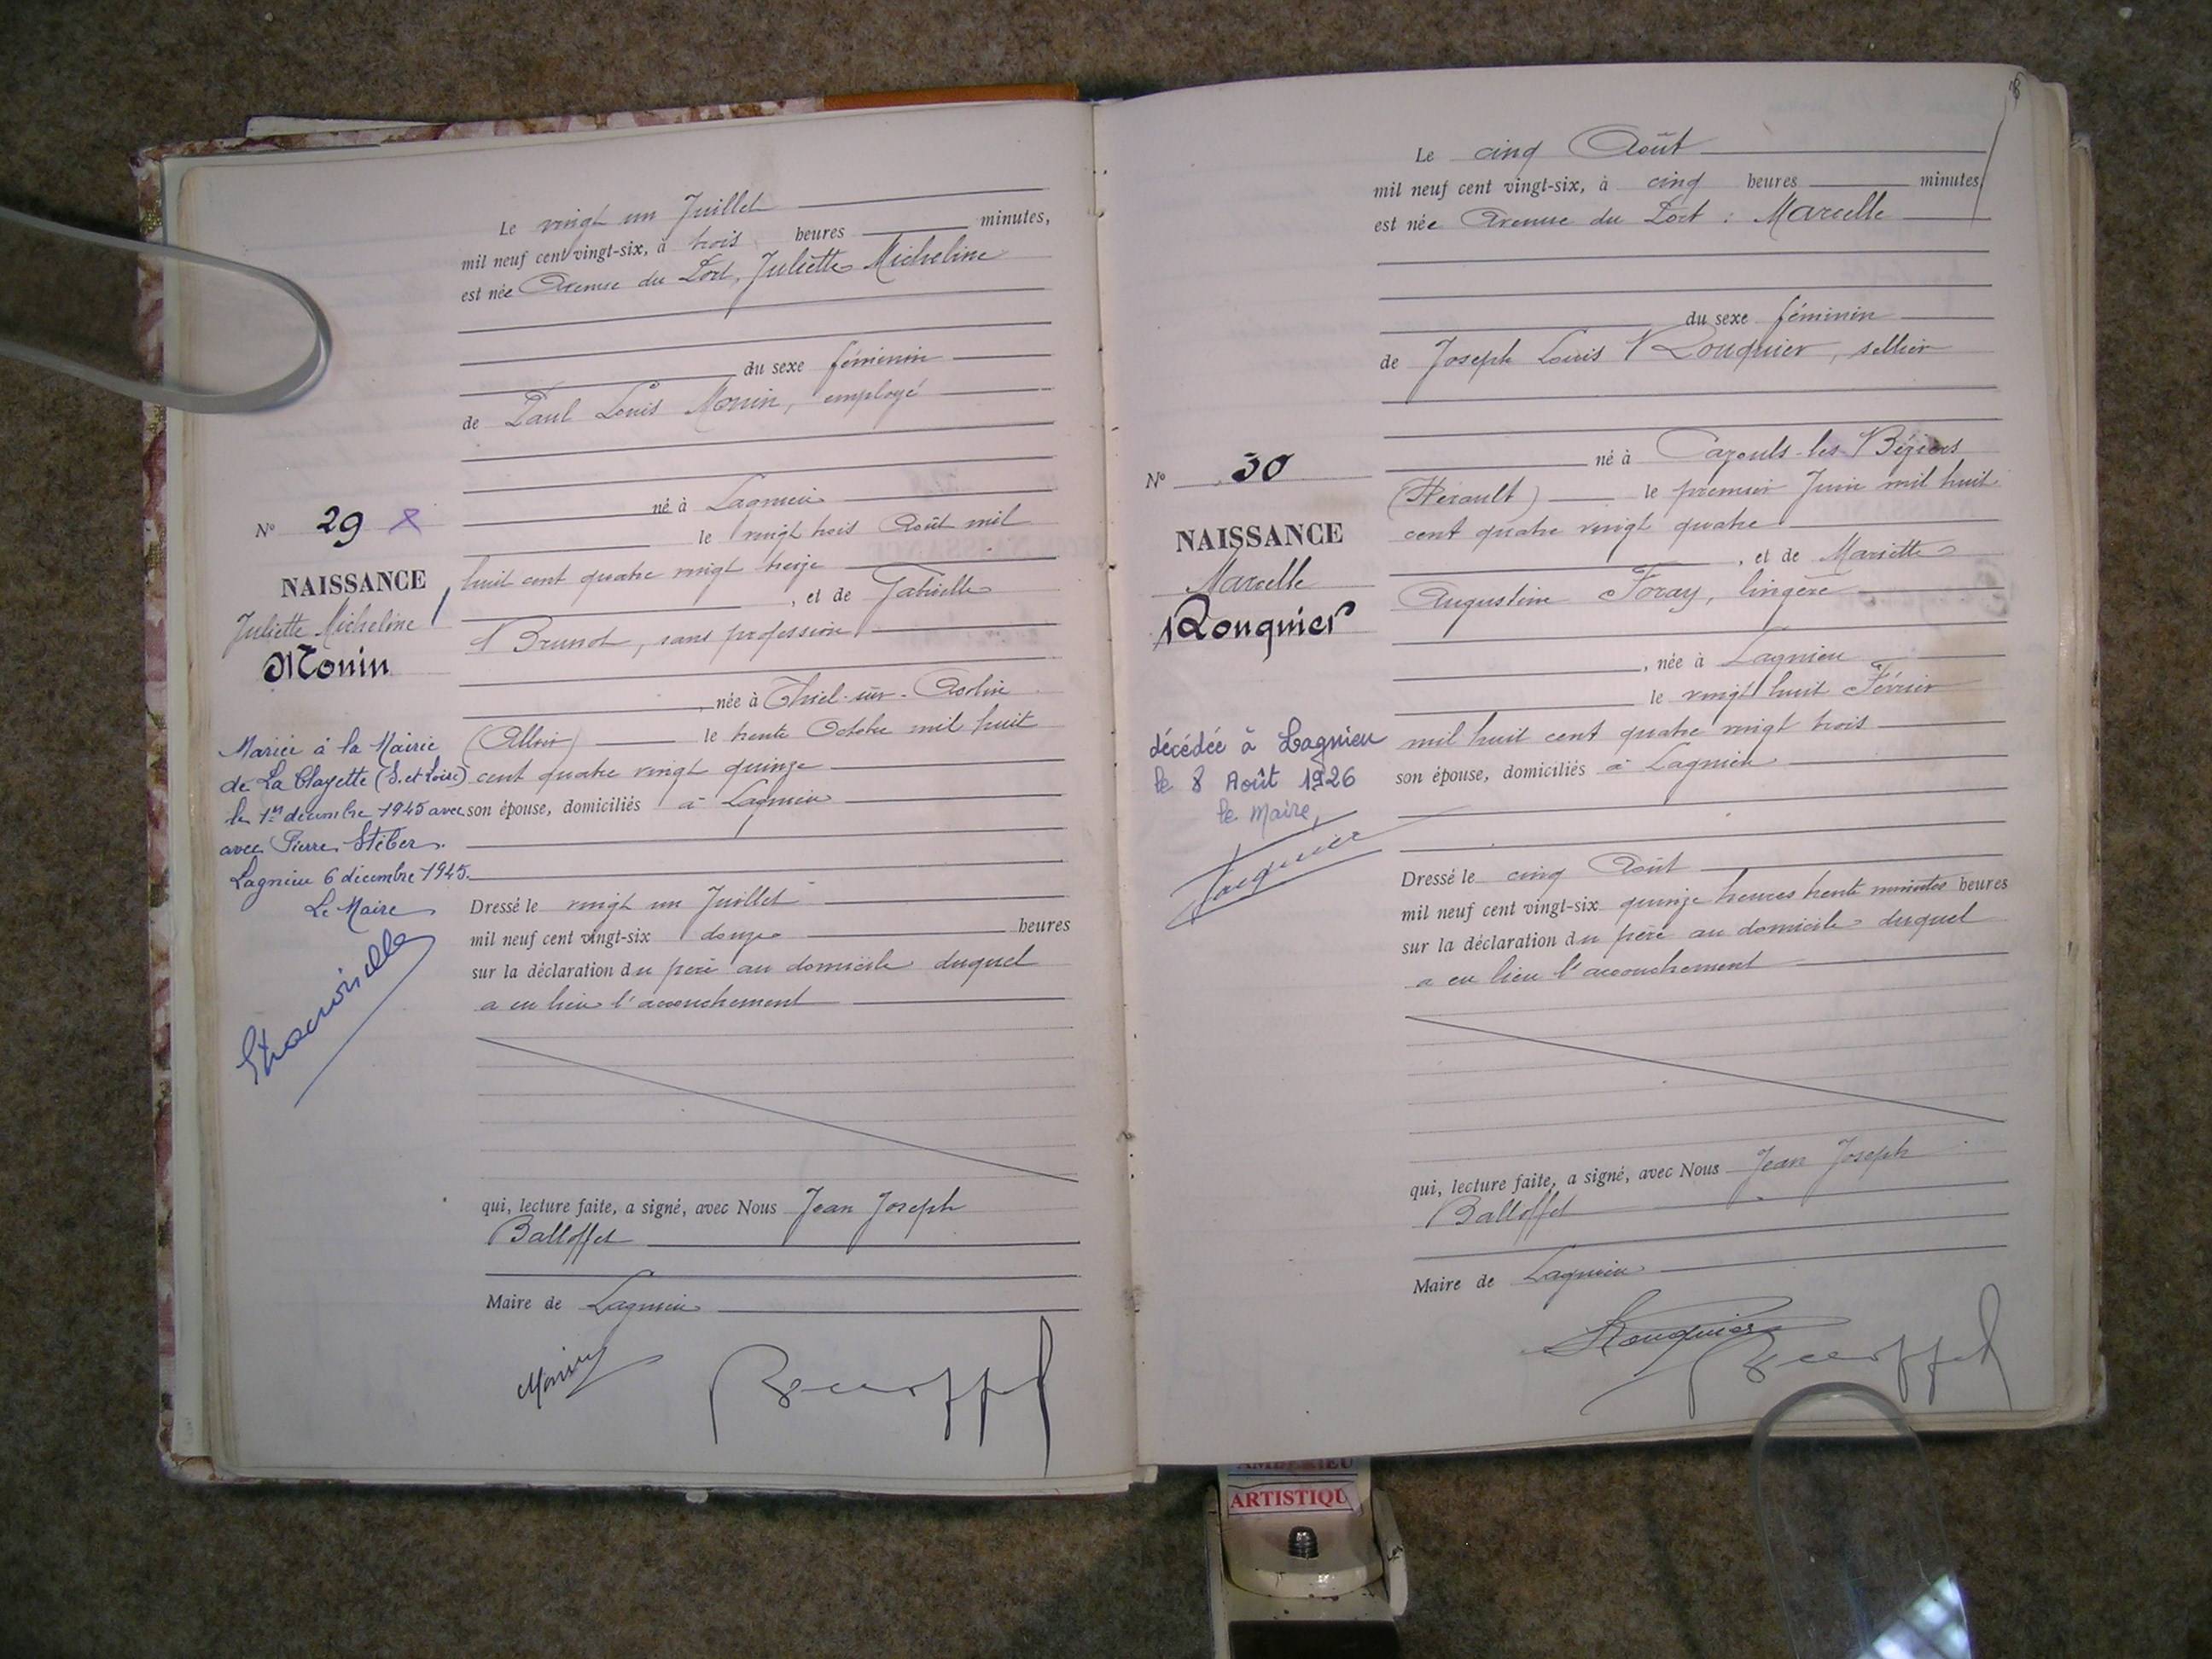 Le vingt un Juillet
mil neuf cent vingt-six, à trois heures minutes,
est née Avenue du Port, Juliette Micheline
du sexe féminin
de Paul Louis Monin, employé
né à Lagnieu
le vingt trois Août mil
huit cent quatre vingt treize
, et de Gabrielle
Brunot, sans profession
, née à Thiel-sur-Acolin
(Allier) le trente Octobre mil huit
cent quatre vingt quinze
son épouse, domiciliés à Lagnieu
Dressé le vingt un Juillet
mil neuf cent vingt-six douze heures
sur la déclaration du père au domicile duquel
a eu lieu l'accouchement
qui, lecture faite, a signé, avec Nous Jean Joseph
Balloffet
Maire de Lagnieu
Monin
Balloffet
N° 29
NAISSANCE
Juliette Micheline
Monin
Mariée à la Mairie
de La Clayette (S. et Loire)
le 1er décembre 1945 avec
avec Pierre Stéber.
Lagnieu 6 décembre 1945.
Le Maire
Le cinq Août
mil neuf cent vingt-six, à cinq heures minutes,
est née Avenue du Port : Marcelle
du sexe féminin
de Joseph Louis Rouquier, sellier
né à Cazouls-les-Béziers
(Hérault) le premier Juin mil huit
cent quatre vingt quatre
, et de Mariette
Augustine Foray, lingère
, née à Lagnieu
le vingt huit Février
mil huit cent quatre vingt trois
son épouse, domiciliés à Lagnieu
Dressé le cinq Août
mil neuf cent vingt-six quinze heures trente minutes heures
sur la déclaration du père au domicile duquel
a eu lieu l'accouchement
qui, lecture faite, a signé, avec Nous Jean Joseph
Balloffet
Maire de Lagnieu
Rouquier
Balloffet
N° 30
NAISSANCE
Marcelle
Rouquier
décédée à Lagnieu
le 8 Août 1926
le Maire,
ARTISTIQU